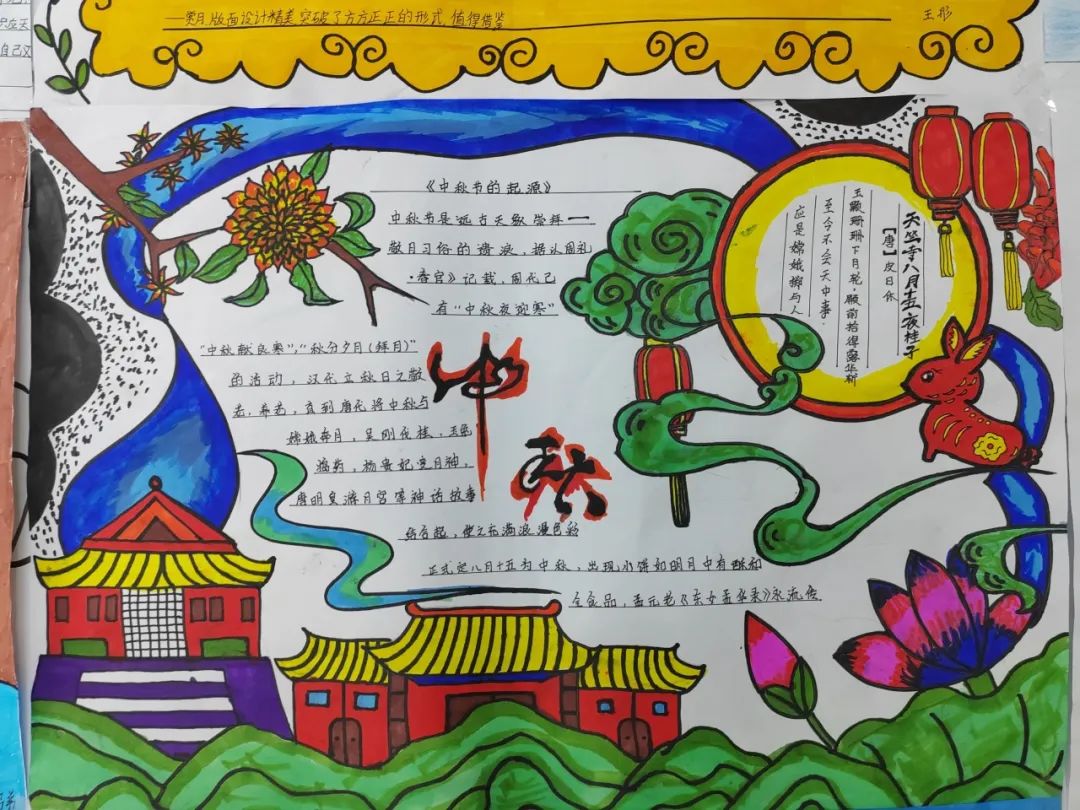 一窦月版面设计精美突破了方方正正的形式,值得借鉴
王彤
自己又
《中秋节的起源》
中秋节是远古天象崇拜一
敬月习俗的遗痕,据认周礼
·春官》记载,周代已
有"中秋夜迎寒"
"中秋献良裘","秋分夕月(拜月)"
的活动,汉代立秋日之敬
老,养老,直到唐代将中秋与
嫦娥奔月,吴刚伐桂,玉兔
捣药,杨贵妃变月神,
唐明皇游月宫等神话故事
结合起,使之充满浪漫色彩
正式定八月十五为中秋,出现小饼如明月中有酥和
食品,孟元老《东女孟华录》永流传
中秋
天竺寺八月十五夜桂子
【唐】皮日休
玉颗珊珊下月轮,殿前拾得露华新
至今不会天中事,
应是嫦娥掷与人